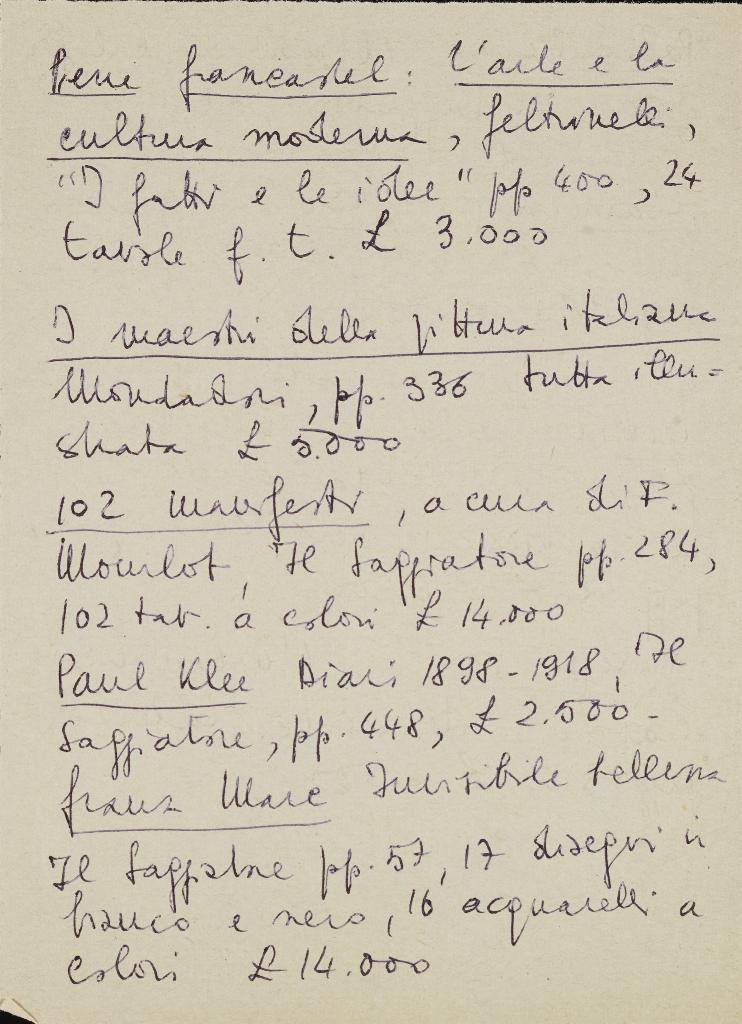 Pierre Francastel: L'arte e la
cultura moderna, Feltrinelli,
"I fatti e le idee" pp 400, 24
tavole f. t. £ 3.000
I maestri della pittura italiana
Mondadori, pp. 336 tutta illu=
strata £ 5.000
102 manifesti, a cura di F.
Mourlot, Il Saggiatore pp. 284,
102 tav. a colori £ 14.000
Paul Klee Diari 1898-1918, Il
Saggiatore, pp. 448, £ 2.500-
Franz Marc Invisibile bellezza
Il Saggiatore pp. 57, 17 disegni in
bianco e nero, 16 acquarelli a
colori £ 14.000